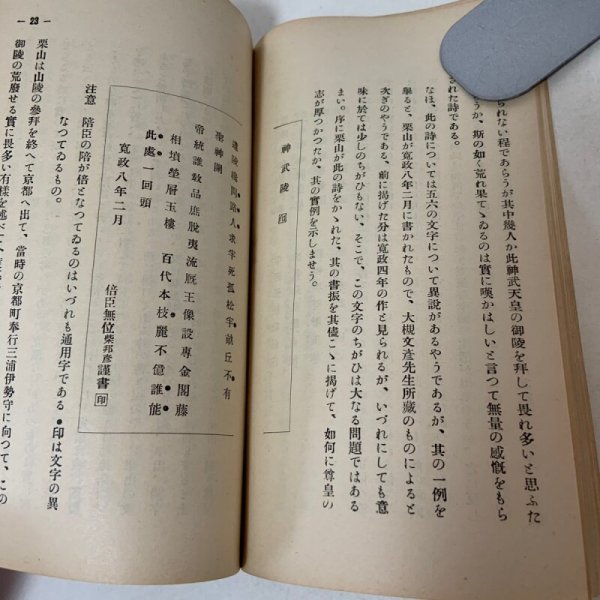 られない程であらうが其中幾人か此神武天皇の御陵を拜して畏れ多いと思ふた
うか、斯の如く荒れ果てゝゐるのは實に嘆かはしいと言つて無量の感慨をもら
された詩である。
なほ、此の詩については五六の文字について異說があるやうであるが、其の一例を
擧ると、栗山が寬政八年二月に書かれたもので、大槻文彥先生所藏のものによると
次ぎのやうである、前に揭げた分は寬政四年の作と見られるが、いづれにしても意
味に於ては少しのちがひもない、そこで、この文字のちがひは大なる問題ではある
まい。序に栗山が此の詩をかゝれた、其の書振を其儘こゝに揭げて、如何に尊皇の
志が厚つかつたか、其の實例を示しませう。
神武陵
遺陵纔問路人求半死孤松半畝丘不有
聖神開
帝統誰敎品庶脫夷流厩王像設專金閣藤
相墳塋層玉樓　百代本枝麗不億誰能
此處一回頭
寬政八年二月　倍臣無位柴邦彥謹書 印
注意　陪臣の陪が倍となつてゐるのはいづれも通用字である●印は文字の異
なつてゐるもの。
栗山は山陵の參拜を終へて京都へ出て、當時の京都町奉行三浦伊勢守に向つて、この
御陵の荒廢せる實に畏多い有樣を述べて、
— 23 —